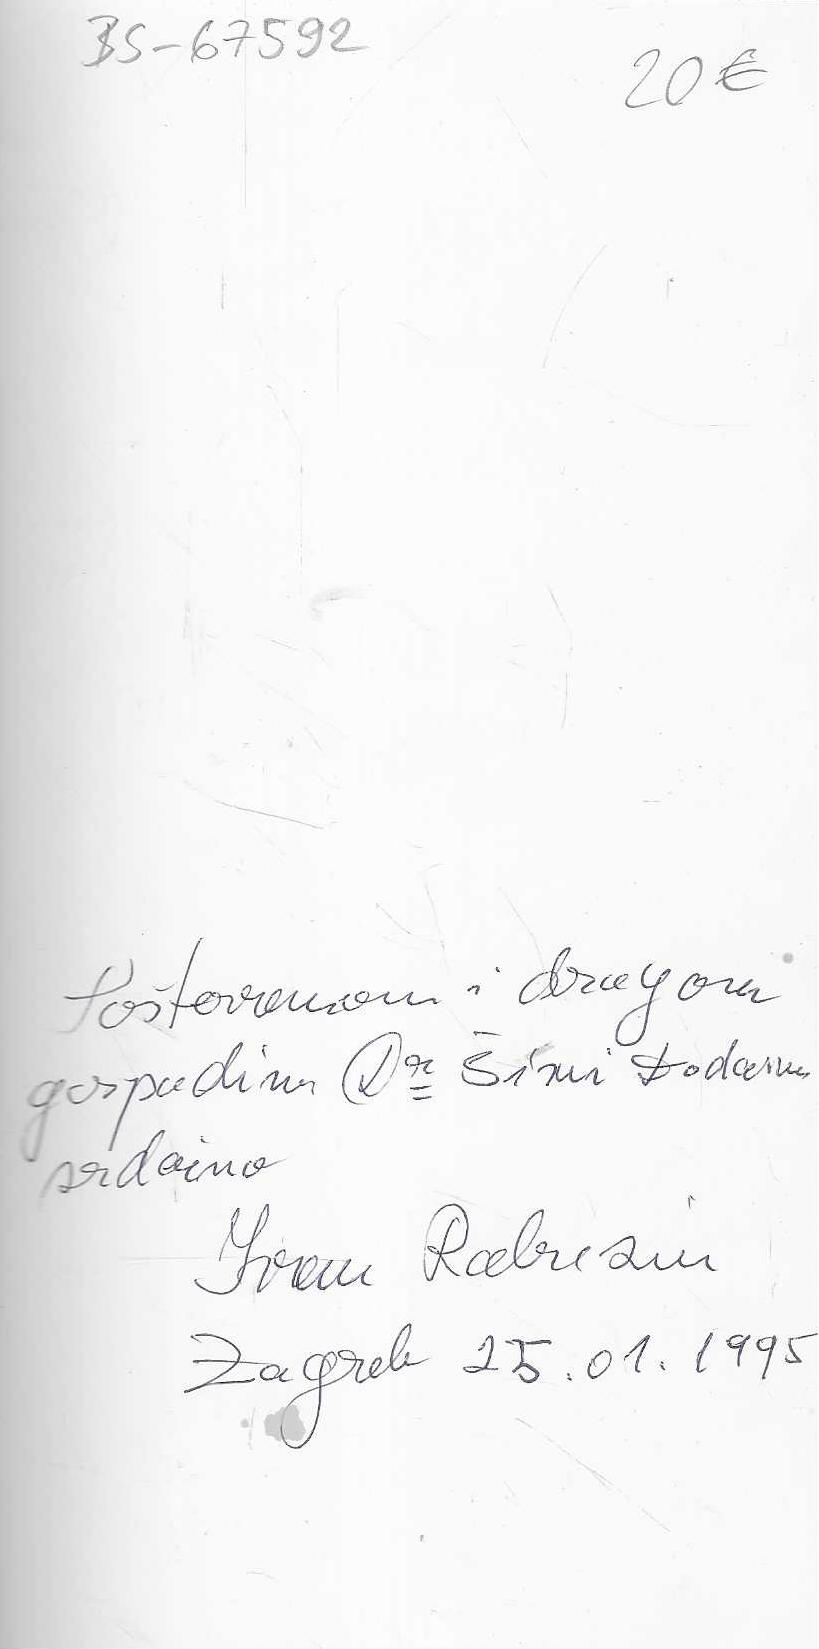 BS-67592
20 €
Poštovanom i dragom
gospodinu Dr Šimi Đodanu
srdačno
Ivan Rabuzin
Zagreb 25.01.1995